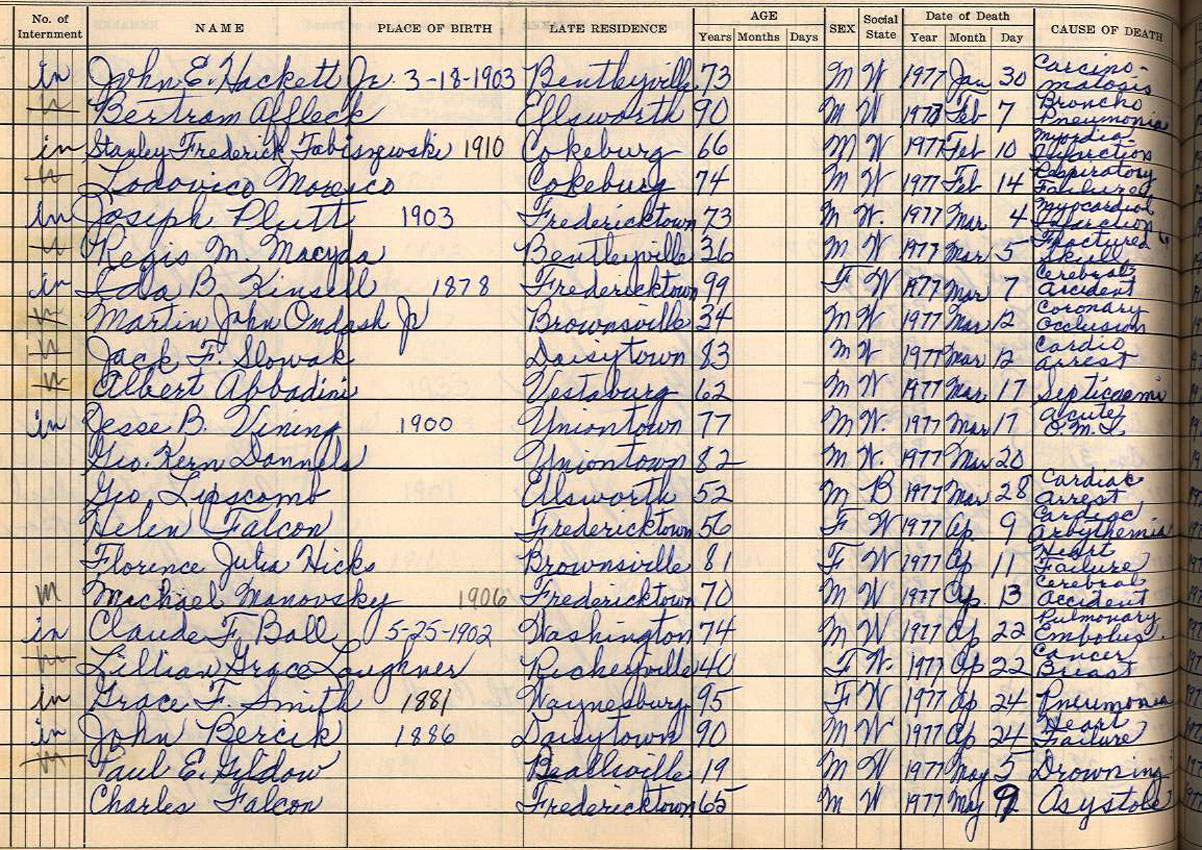 No. of Internment NAME PLACE OF BIRTH LATE RESIDENCE AGE Years Months Days SEX Social State Date of Death Year Month Day CAUSE OF DEATH
in John E. Hackett Jr. 3-18-1903 Bentleyville 73 M W 1977 Jan 30 Carcino-matosis
in Bertram Affleck Ellsworth 90 M W 1977 Feb 7 Broncho Pneumonia
in Stanley Frederick Fabiszewski 1910 Cokeburg 66 M W 1977 Feb 10 Infarction
in Lodovico Moresco Cokeburg 74 M W 1977 Feb 14 Respiratory Failure
in Joseph Plutt 1903 Fredericktown 73 M W. 1977 Mar 4 Myocardial Infarction
in Regis M. Macyda Bentleyville 36 M W 1977 Mar 5 Fractured Skull
in Ida B. Kinsell 1878 Fredericktown 99 F W 1977 Mar 7 Cerebral accident
in Martin John Ondash Jr Brownsville 34 M W 1977 Mar 12 Coronary Occlusion
in Jack F. Slowak Daisytown 83 M W 1977 Mar 12 Cardio arrest
in Albert Abbadini Vestaburg 62 M W 1977 Mar 17 Septicaemi
in Jesse B. Vining 1900 Uniontown 77 M W. 1977 Mar 17 Acute
Geo. Kern Dannels Uniontown 82 M W. 1977 Mar 20
Geo. Lipscomb Ellsworth 52 M B 1977 Mar 28 Cardiac arrest
Helen Falcon Fredericktown 56 F W 1977 Ap 9 Cardiac Arbythemia
Florence Julia Hicks Brownsville 81 F W 1977 Ap 11 Heart Failure
in Michael Manovsky 1906 Fredericktown 70 M W 1977 Ap. 13 Cerebral accident
in Claude F. Ball 5-25-1902 Washington 74 M W 1977 Ap 22 Pulmonary Embolus
in Lillian Grace Loughner Richeyville 40 F W. 1977 Ap 22 Cancer Breast
in Grace F. Smith 1881 Waynesburg 95 F W 1977 Ap 24 Pneumonia
in John Bercik 1886 Daisytown 90 M W 1977 Ap 24 Heart Failure
in Paul E. Gildow Beallsville 19 M W 1977 May 5 Drowning
Charles Falcon Fredericktown 65 M W 1977 May 9 Asystole